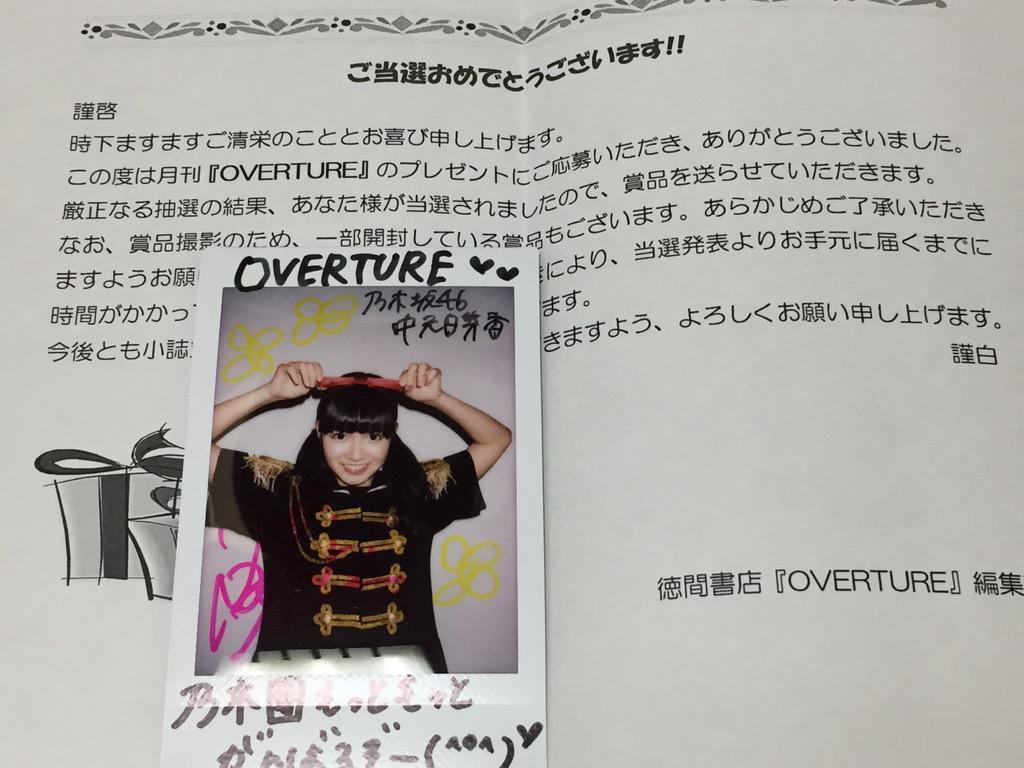 ご当選おめでとうございます!!
謹啓
時下ますますご清栄のこととお喜び申し上げます。
この度は月刊『OVERTURE』のプレゼントにご応募いただき、ありがとうございました。
厳正なる抽選の結果、あなた様が当選されましたので、賞品を送らせていただきます。
なお、賞品撮影のため、一部開封している賞品もございます。あらかじめご了承いただき
ますようお願い
により、当選発表よりお手元に届くまでに
時間がかかっ
ます。
今後とも小誌
きますよう、よろしくお願い申し上げます。
謹白
徳間書店『OVERTURE』編集
OVERTURE
乃木坂46
中元日芽香
乃木團もっともっと
がんばるぞー(^o^)